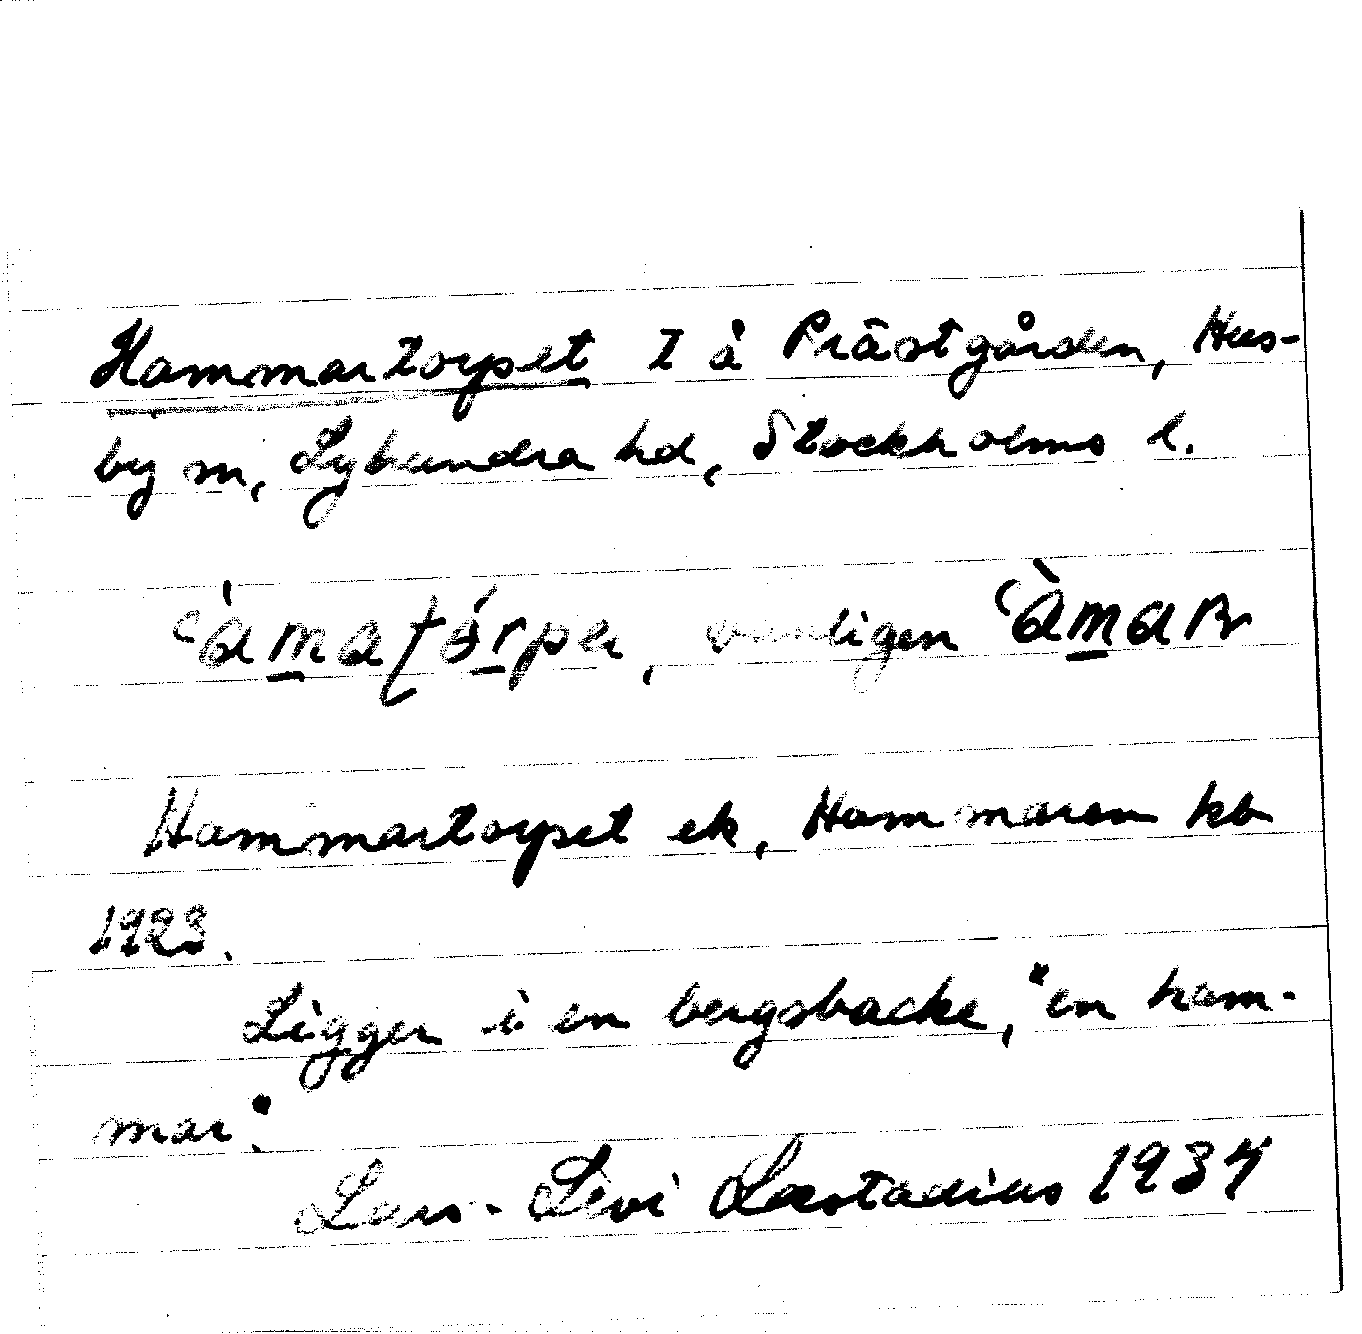 Hammartorpet I å Prästgården, Hus-
by sn, Lyhundra hd, Stockholms l.
`àmaṯórpeṯ, vanligen `àmaṟn
Hammartorpet ek, Hammaren kb
1923.
Ligger i en bergsbacke, "en ham-
mar".
Lars-Levi Læstadius 1934